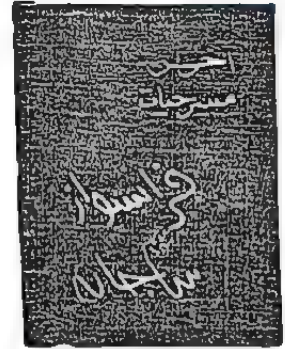 آخر
مسرحيات
فرانسواز
ساجان